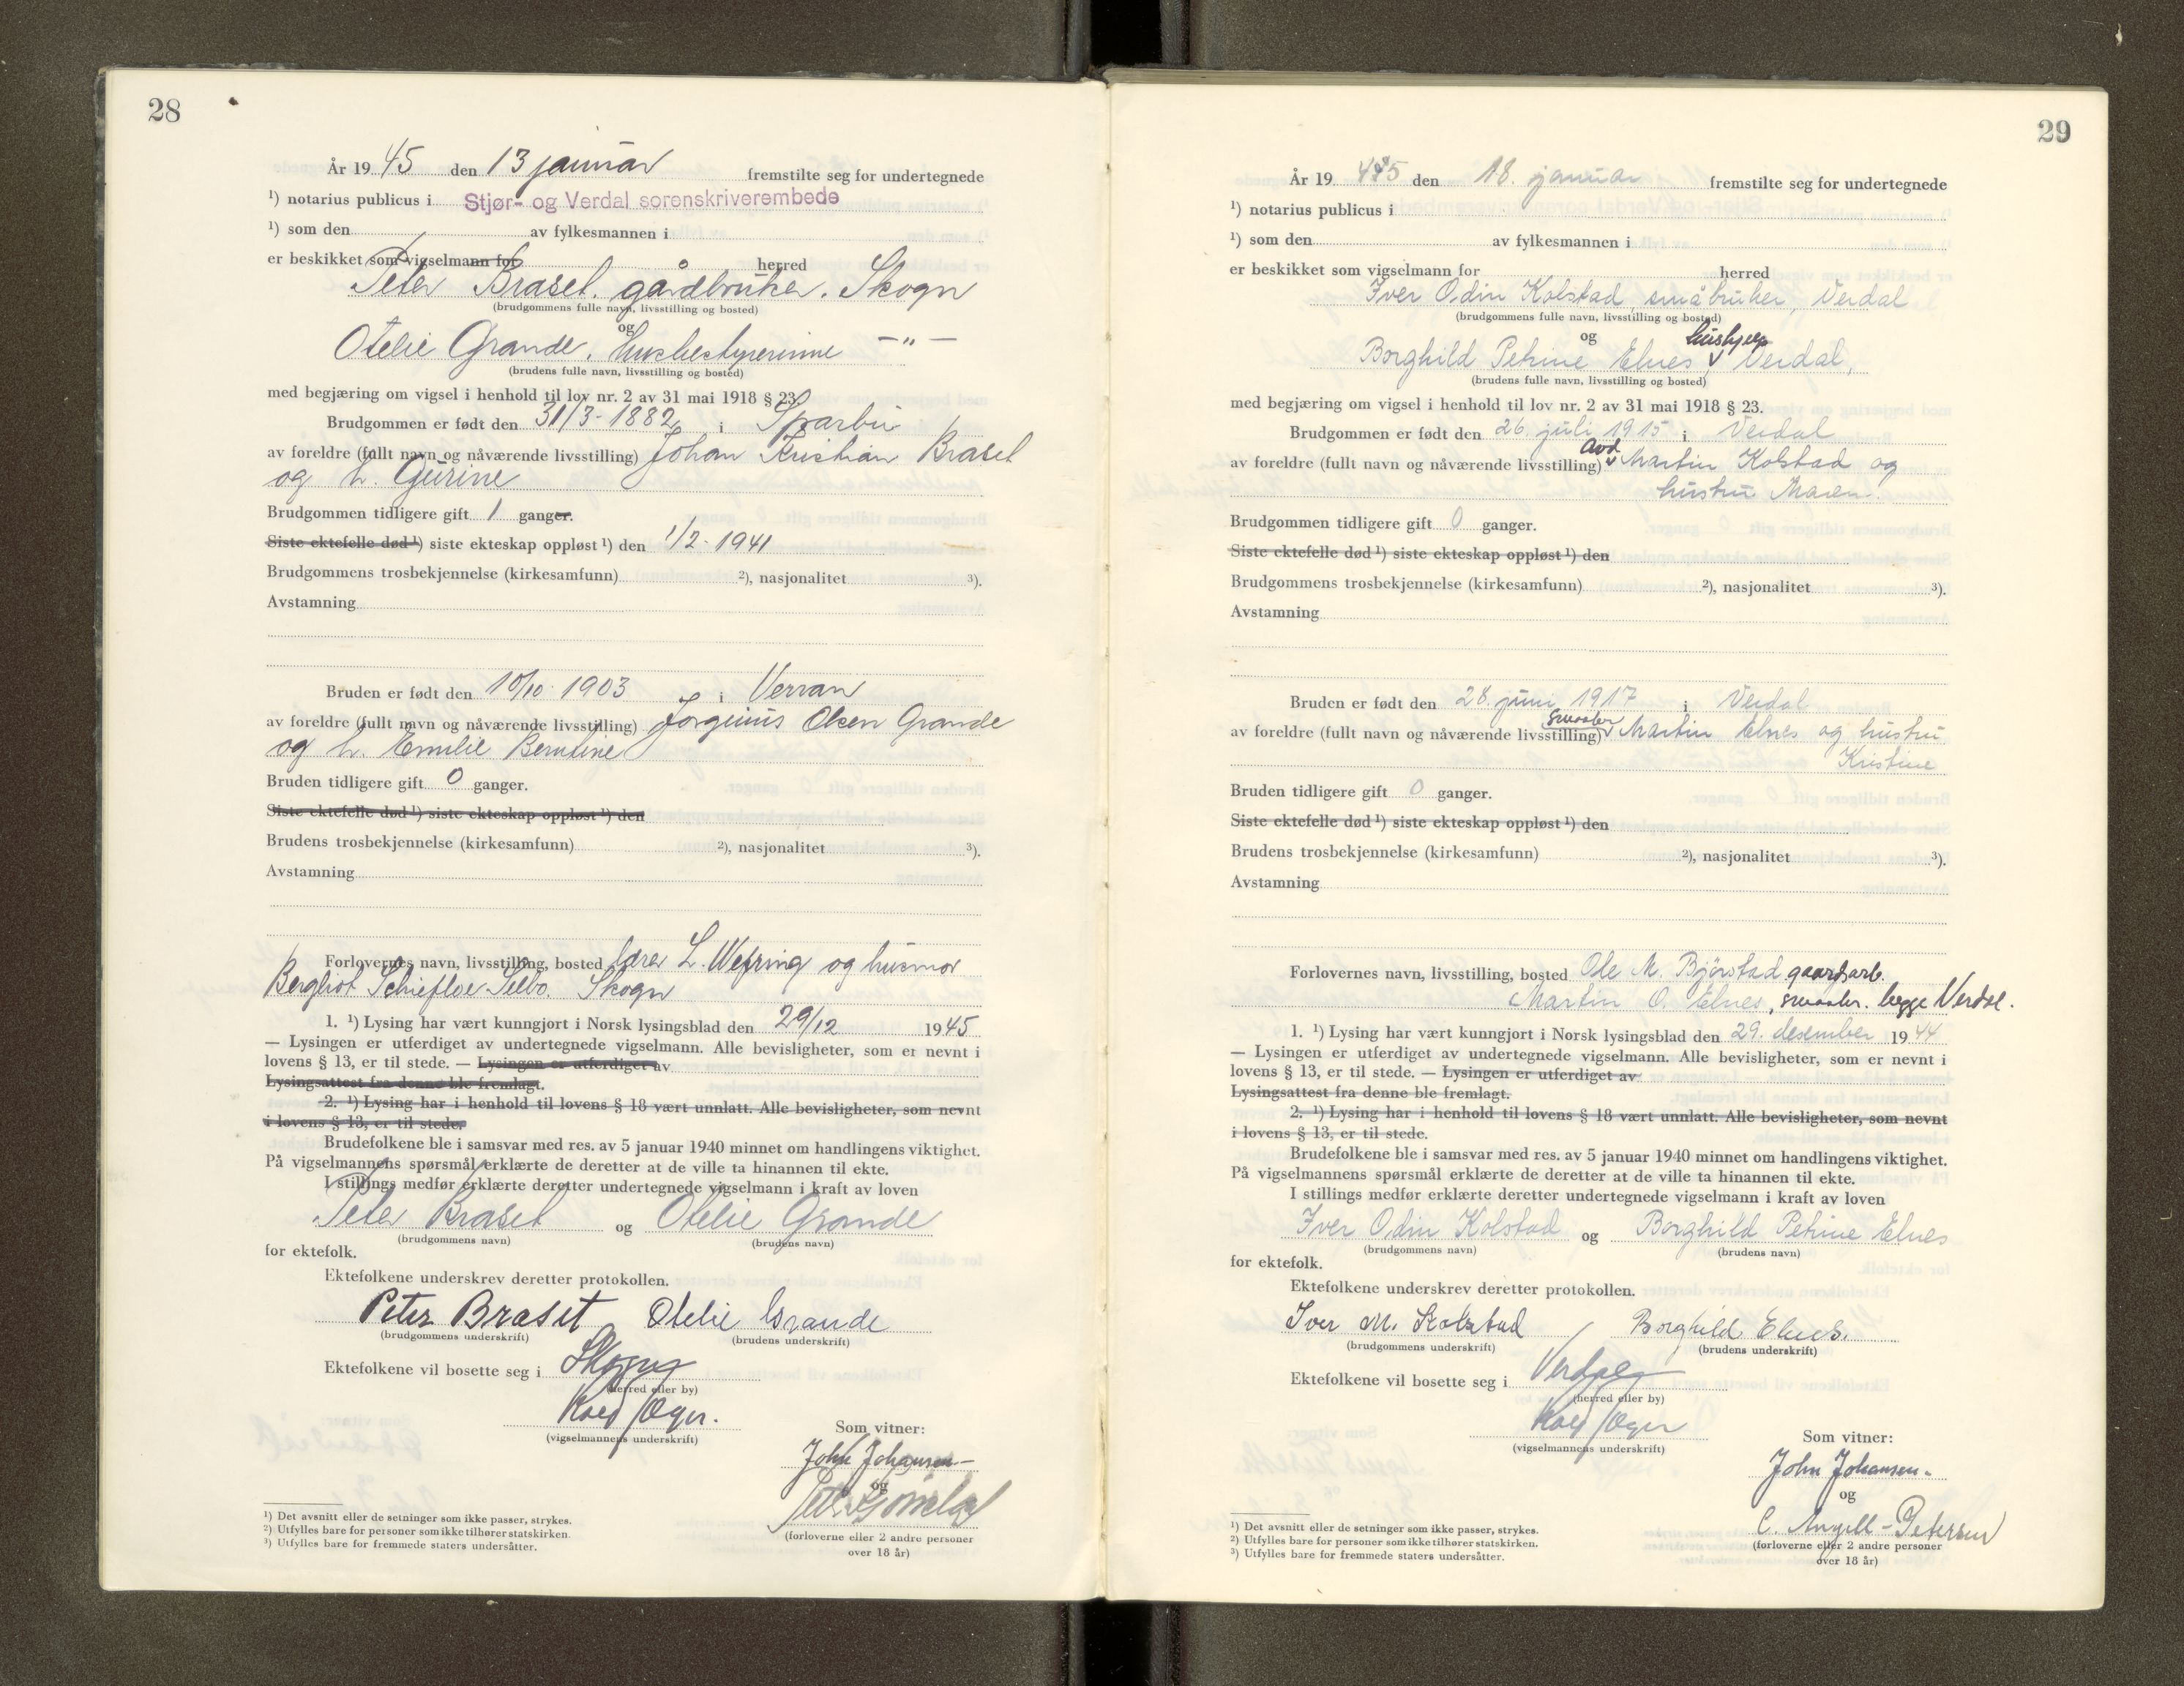 28
År 19 45 den 13 januar fremstilte seg for undertegnede
¹) notarius publicus i Stjør- og Verdal sorenskriverembede
¹) som den av fylkesmannen i
er beskikket som vigselmann for herred
Peter Braset. gårdbruker. Skogn
(brudgommens fulle navn, livsstilling og bosted)
og
Otelie Grande. Husbestyrerinne —"—
(brudens fulle navn, livsstilling og bosted)
med begjæring om vigsel i henhold til lov nr. 2 av 31 mai 1918 § 23.
Brudgommen er født den 31/3-1882 i Sparbu
av foreldre (fullt navn og nåværende livsstilling) Johan Kristian Braset
og h. Gurine
Brudgommen tidligere gift 1 ganger.
Siste ektefelle død ¹) siste ekteskap oppløst ¹) den 1/2-1941
Brudgommens trosbekjennelse (kirkesamfunn) ²), nasjonalitet ³).
Avstamning
Bruden er født den 10/10-1903 i Verran
av foreldre (fullt navn og nåværende livsstilling) Jorginus Olsen Grande
og h. Emilie Berntine
Bruden tidligere gift 0 ganger.
Siste ektefelle død ¹) siste ekteskap oppløst ¹) den
Brudens trosbekjennelse (kirkesamfunn) ²), nasjonalitet ³).
Avstamning
Forlovernes navn, livsstilling, bosted lærer L. Wefring og husmor
Bergliot Schiefloe-Selbo. Skogn
1. ¹) Lysing har vært kunngjort i Norsk lysingsblad den 29/12 1945
— Lysingen er utferdiget av undertegnede vigselmann. Alle bevisligheter, som er nevnt i
lovens § 13, er til stede. — Lysingen er utferdiget av
Lysingsattest fra denne ble fremlagt.
2. ¹) Lysing har i henhold til lovens § 18 vært unnlatt. Alle bevisligheter, som nevnt
i lovens § 13, er til stede.
Brudefolkene ble i samsvar med res. av 5 januar 1940 minnet om handlingens viktighet.
På vigselmannens spørsmål erklærte de deretter at de ville ta hinannen til ekte.
I stillings medfør erklærte deretter undertegnede vigselmann i kraft av loven
Peter Braset og Otelie Grande
(brudgommens navn) (brudens navn)
for ektefolk.
Ektefolkene underskrev deretter protokollen.
Peter Braset Otelie Grande
(brudgommens underskrift) (brudens underskrift)
Ektefolkene vil bosette seg i Skogn
(herred eller by)
(vigselmannens underskrift)
Som vitner:
John Johansen-
og
(forloverne eller 2 andre personer
over 18 år)
¹) Det avsnitt eller de setninger som ikke passer, strykes.
²) Utfylles bare for personer som ikke tilhører statskirken.
³) Utfylles bare for fremmede staters undersåtter.
29
År 19 45 den 18. januar fremstilte seg for undertegnede
¹) notarius publicus i
¹) som den av fylkesmannen i
er beskikket som vigselmann for herred
Iver Odin Kolstad, småbruker, Verdal
(brudgommens fulle navn, livsstilling og bosted)
og
Borghild Petrine Elnes, hushjelp Verdal,
(brudens fulle navn, livsstilling og bosted)
med begjæring om vigsel i henhold til lov nr. 2 av 31 mai 1918 § 23.
Brudgommen er født den 26. juli 1915 i Verdal
av foreldre (fullt navn og nåværende livsstilling) avd Martin Kolstad og
hustru Maren.
Brudgommen tidligere gift 0 ganger.
Siste ektefelle død ¹) siste ekteskap oppløst ¹) den
Brudgommens trosbekjennelse (kirkesamfunn) ²), nasjonalitet ³).
Avstamning
Bruden er født den 28. juni 1917 i Verdal
av foreldre (fullt navn og nåværende livsstilling) Martin Elnes og hustru
Kristine
Bruden tidligere gift 0 ganger.
Siste ektefelle død ¹) siste ekteskap oppløst ¹) den
Brudens trosbekjennelse (kirkesamfunn) ²), nasjonalitet ³).
Avstamning
Forlovernes navn, livsstilling, bosted Ole M. Bjørstad gaardsarb.
Martin O. Elnes, begge Verdal.
1. ¹) Lysing har vært kunngjort i Norsk lysingsblad den 29. desember 1944
— Lysingen er utferdiget av undertegnede vigselmann. Alle bevisligheter, som er nevnt i
lovens § 13, er til stede. — Lysingen er utferdiget av
Lysingsattest fra denne ble fremlagt.
2. ¹) Lysing har i henhold til lovens § 18 vært unnlatt. Alle bevisligheter, som nevnt
i lovens § 13, er til stede.
Brudefolkene ble i samsvar med res. av 5 januar 1940 minnet om handlingens viktighet.
På vigselmannens spørsmål erklærte de deretter at de ville ta hinannen til ekte.
I stillings medfør erklærte deretter undertegnede vigselmann i kraft av loven
Iver Odin Kolstad og Borghild Petrine Elnes
(brudgommens navn) (brudens navn)
for ektefolk.
Ektefolkene underskrev deretter protokollen.
Iver M. Kolstad Borghild Elnes.
(brudgommens underskrift) (brudens underskrift)
Ektefolkene vil bosette seg i Verdal
(herred eller by)
(vigselmannens underskrift)
Som vitner:
John Johansen-
og
C. Angell-Petersen
(forloverne eller 2 andre personer
over 18 år)
¹) Det avsnitt eller de setninger som ikke passer, strykes.
²) Utfylles bare for personer som ikke tilhører statskirken.
³) Utfylles bare for fremmede staters undersåtter.